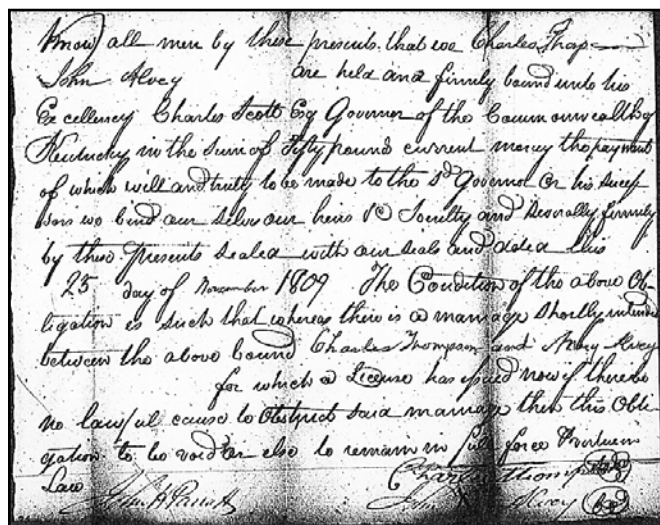 Know all men by these presents that we Charles Thap
John Alvey are held and firmly bound unto his
Excellency Charles Scott Esq Governor of the Commonwealth of
Kentucky in the sum of Fifty pound current money the payment
of which will and truly to be made to the sd Governor or his succes
sors we bind our selves our heirs &c Jointly and Severally firmly
by these presents sealed with our seals and dated this
25 day of November 1809 The Condition of the above Ob-
ligation is such that whereas there is a marriage Shortly intended
between the above bound Charles Thompson and Alvey
for which a License has issued now if there be
no lawful cause to Obstruct said marriage then this Obli-
gation to be void or else to remain in full force
Law Charles Thompson
John Alvey